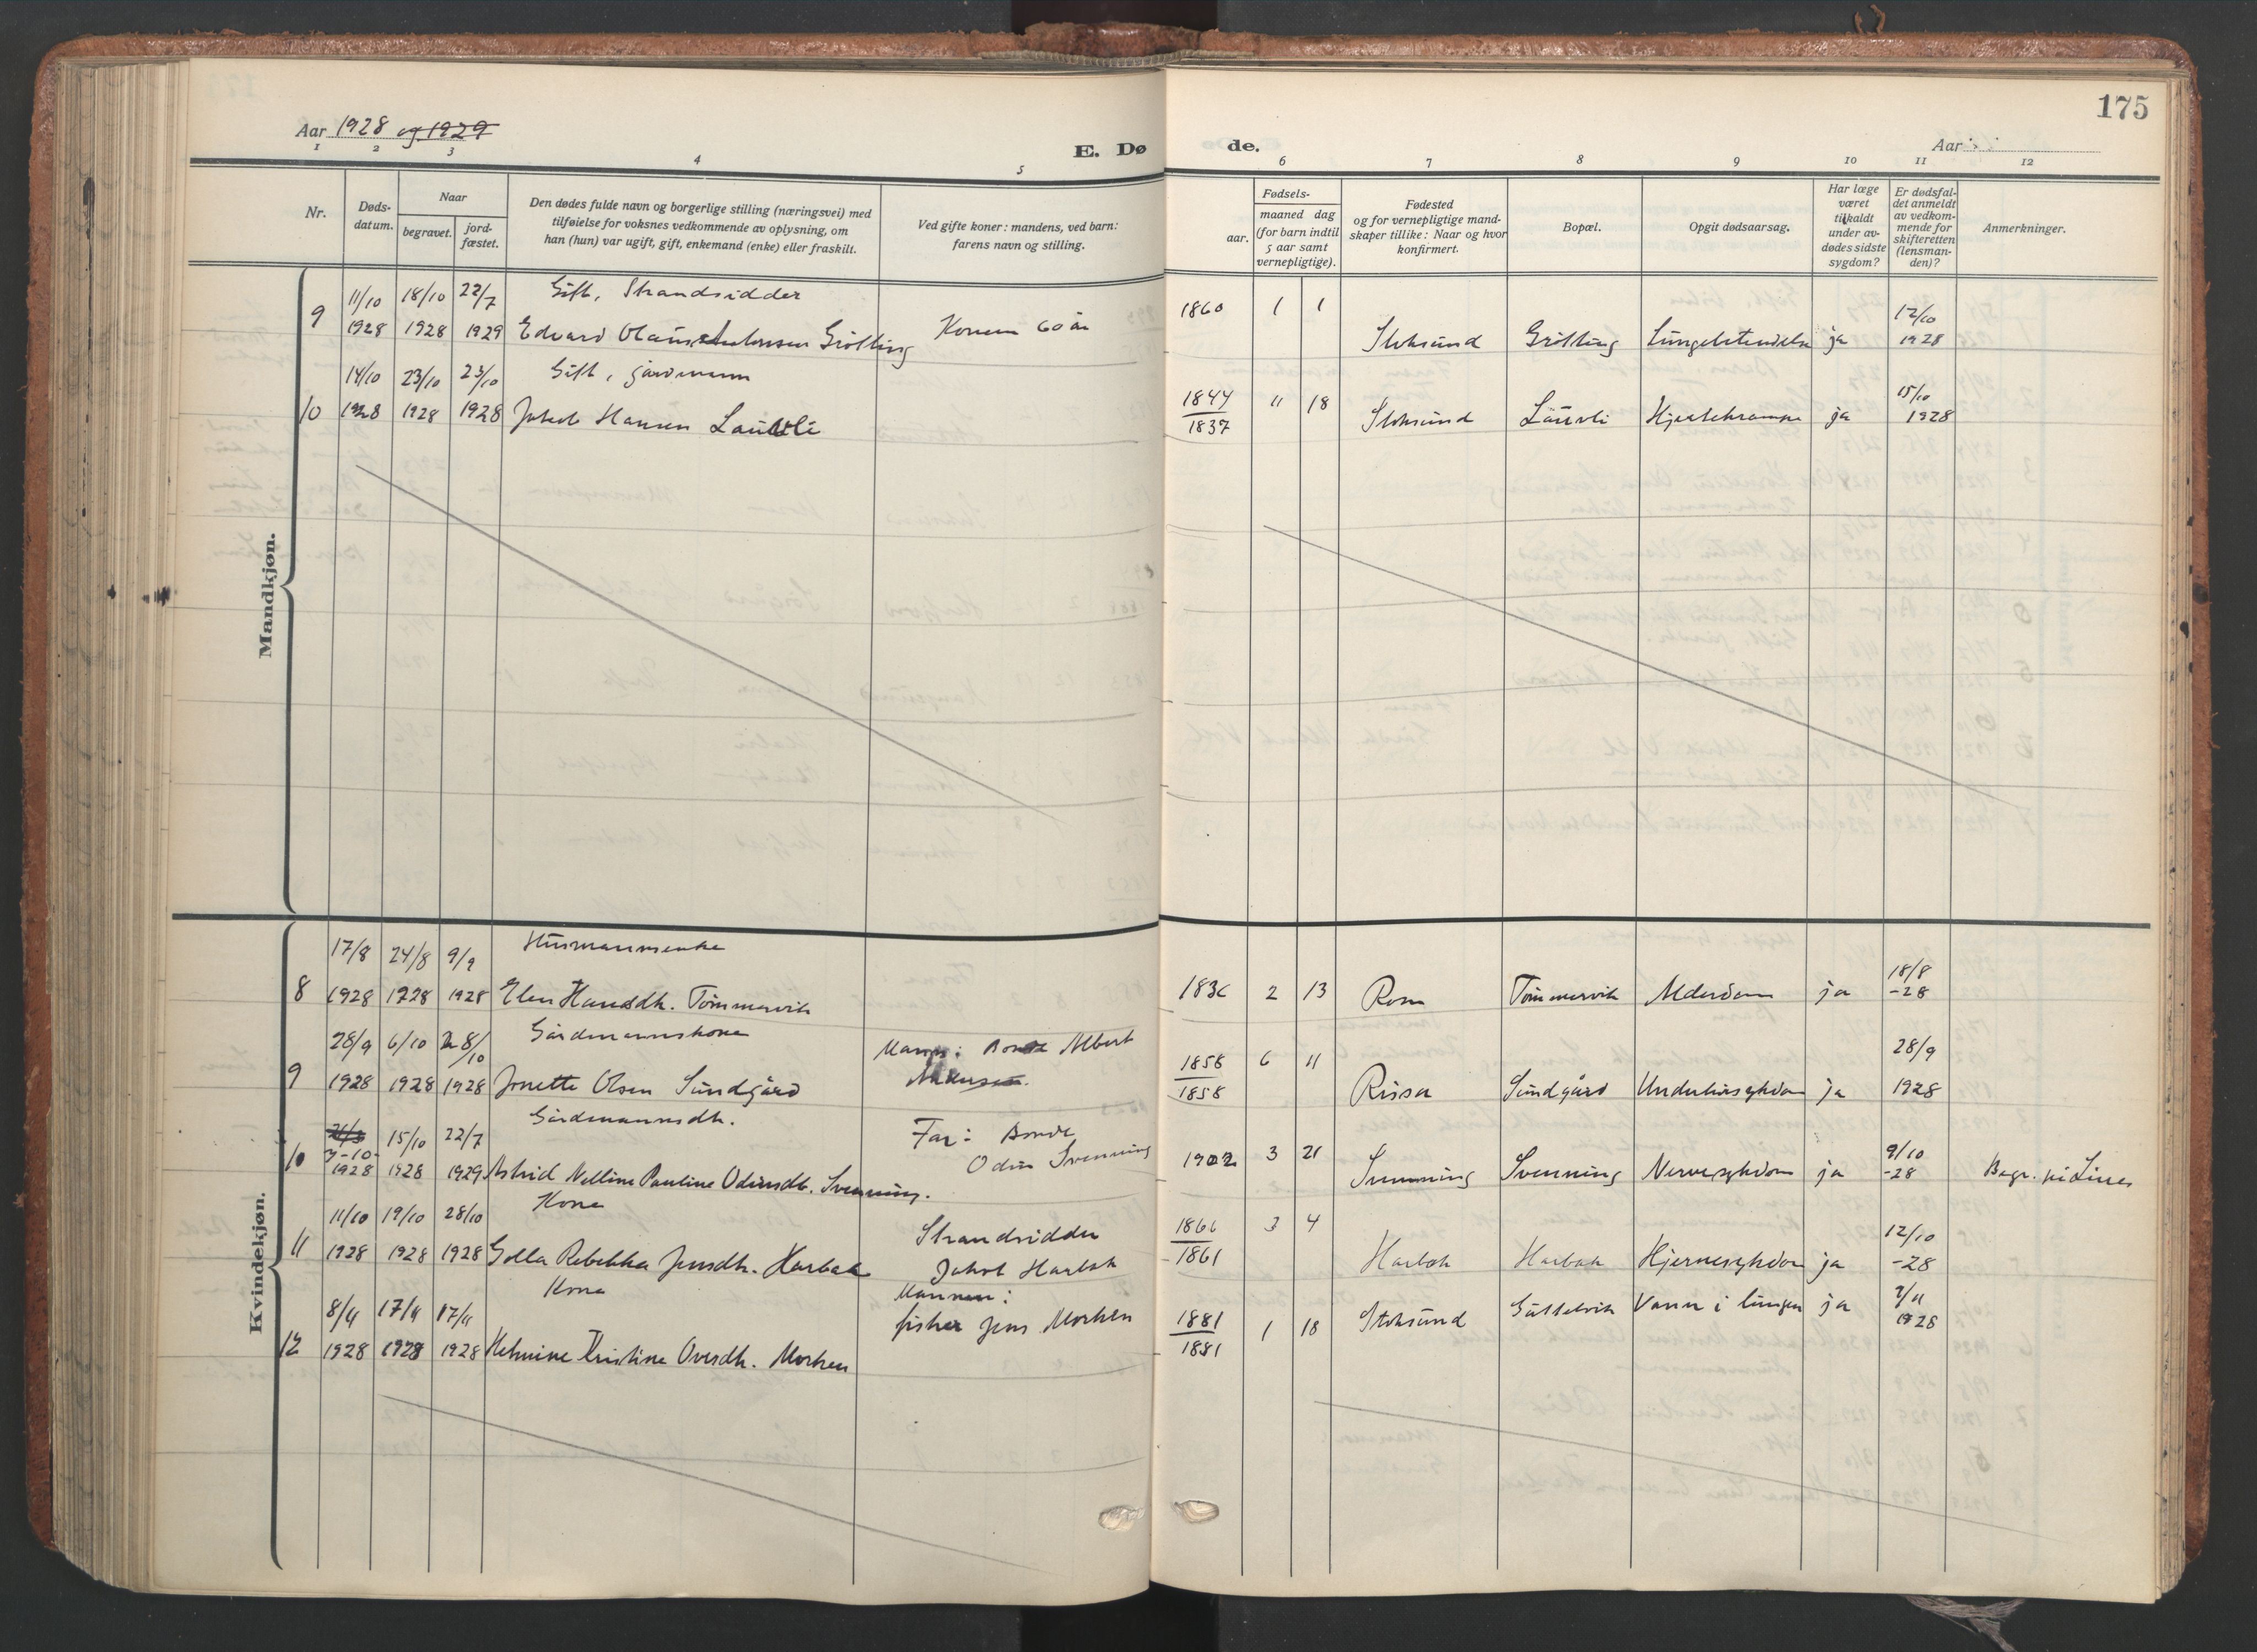 175
Aar 1928 og 1929
E. Dø
de.
Aar
1 2 3 4 5 6 7 8 9 10 11 12
Nr.
Døds-
datum.
Naar
begravet.
jord-
fæstet.
Den dødes fulde navn og borgerlige stilling (næringsvei) med
tilføielse for voksnes vedkommende av oplysning, om
han (hun) var ugift, gift, enkemand (enke) eller fraskilt.
Ved gifte koner: mandens, ved barn:
farens navn og stilling.
Fødsels-
aar.
maaned dag
(for barn indtil
5 aar samt
vernepligtige).
Fødested
og for vernepligtige mand-
skaper tillike: Naar og hvor
konfirmert.
Bopæl.
Opgit dødsaarsag.
Har læge
været
tilkaldt
under av-
dødes sidste
sygdom?
Er dødsfal-
det anmeldt
av vedkom-
mende for
skifteretten
(lensman-
den)?
Anmerkninger.
Mandkjøn.
11/10 18/10 22/7 Gift, Strandsidder 1860 1 1 12/10
9 1928 1928 1929 Edvard Olaus Grötting Konen 60 år Stoksund Grötting ja 1928
14/10 23/10 23/10 Gift, gårdmann 1844 11 18 15/10
10 1928 1928 1928 Jakob Hansen Lauvli 1837 Stoksund Lauvli Hjertekrampe ja 1928
Kvindekjøn.
17/8 24/8 9/9 Husmannsenke 18/8
8 1928 1928 1928 Elen Hansdh. Tömmervik 1836 2 13 Tömmervik Alderdom ja -28
28/9 6/10 8/10 Gårdmannskone Mann: Bonde Albert 1858 6 11 28/9
9 1928 1928 1928 Jonette Olsen Sundgård 1858 Rissa Sundgård Underlivssykdom ja 1928
15/10 22/7 Gårdmannsdh. Far: Bonde
7-10- Odin Svenning 9/10
10 1928 1928 1929 Astrid Nelline Pauline Odinsdh. Svenning. 1902 3 21 Svenning Svenning Nervesykdom ja -28 Begr. på Lines
11/10 19/10 28/10 Kone Strandsidder 1866 3 4 12/10
11 1928 1928 1928 Golla Rebekka Jensdh. Harbak Jakob Harbak 1861 Harbak Harbak Hjernesykdom ja -28
8/11 17/11 17/11 Kone Mannen:
fisker Jens Morken 1881 1 18 Stoksund Vann i lungen ja 1928
12 1928 1928 1928 Helmine Kristine Ovesdh. Morken 1881